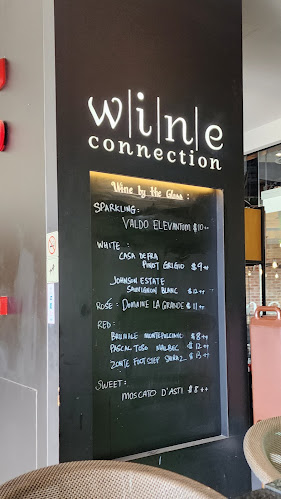 w|i|n|e
connection
Wine by the Glass :
SPARKLING:
VALDO ELEVANTUM $10++
WHITE:
CASA DEFRA
PINOT GRIGIO $9++
JOHNSON ESTATE
SAUVIGNON BLANC $12++
ROSE: DOMAINE LA GRANDE $11++
RED:
BRUNILE MONTEPULCIANO $8++
PASCAL TOSO MALBEC $12++
ZONTE FOOTSTEP SHIRAZ $13++
SWEET:
MOSCATO D'ASTI $8++